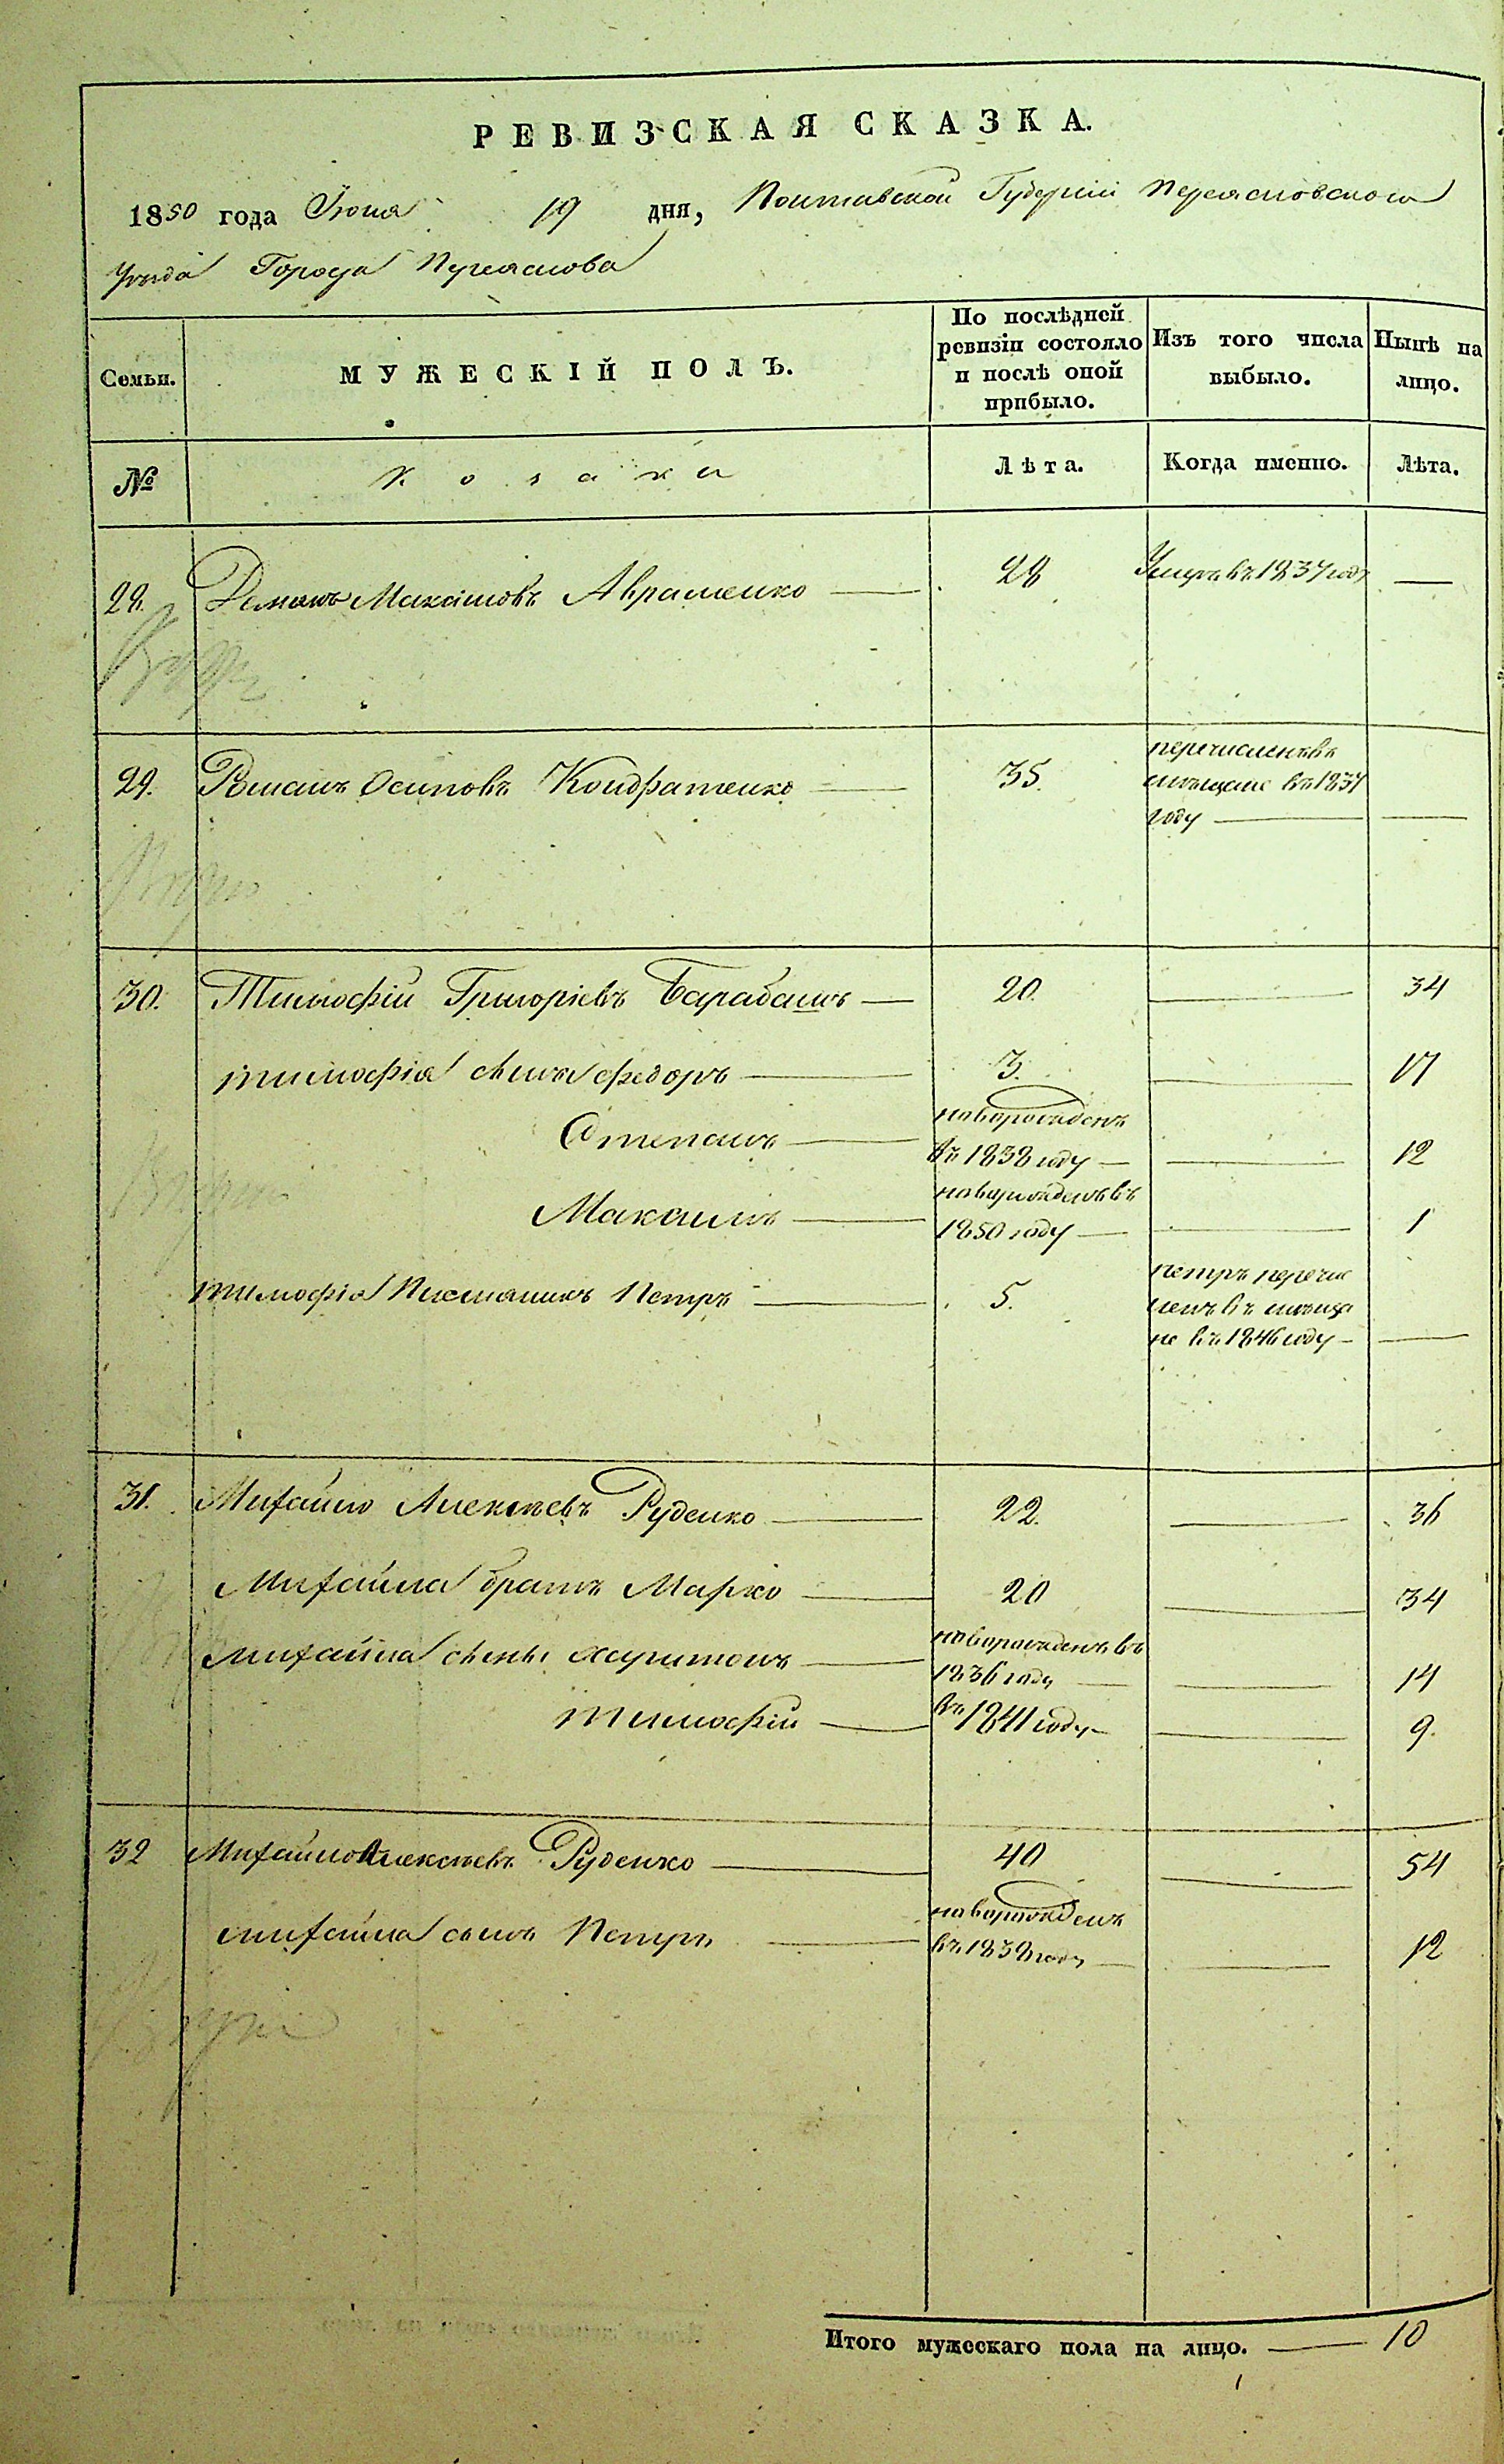 РЕВИЗСКАЯ СКАЗКА.
1850 года Іюня 19 дня, Полтавской Губерніи Переясловского
Уезда Города Переяслова
Семьи.
МУЖЕСКІЙ ПОЛЪ.
По послѣдней ревизіи состояло и послѣ оной прибыло.
Изъ того числа выбыло.
Нынѣ на лицо.
№
Козаки
Лѣта.
Когда именно.
Лѣта.
28. Романъ Авраменко — 28 Умеръ въ 1837 году —
29. Романъ Осиповъ Кондратенко — 35. перечисленъ въ
мѣщане въ 1837
году — —
30. Тимофій Григоріевъ Барабашъ — 20. — 34
тимофія сынъ федоръ — 3. — 17
Степанъ — новорожденъ
въ 1838 году — — 12
Максимъ — новорожденъ въ
1850 году — — 1
тимофія Петръ — 5. петръ перечис
ленъ въ мѣща
не въ 1846 году — —
31. Михайло Алексѣевъ Руденко — 22. — 36
Михайла братъ Марко — 20 — 34
михайла сыны харитонъ — новорожденъ въ
1836 году — — 14
тимофій — въ 1841 году — — 9.
32 Михайло Алексѣевъ Руденко — 40 — 54
михайла сынъ Петръ — новорожденъ
въ 1838 году — — 12
Итого мужескаго пола на лицо. — 10